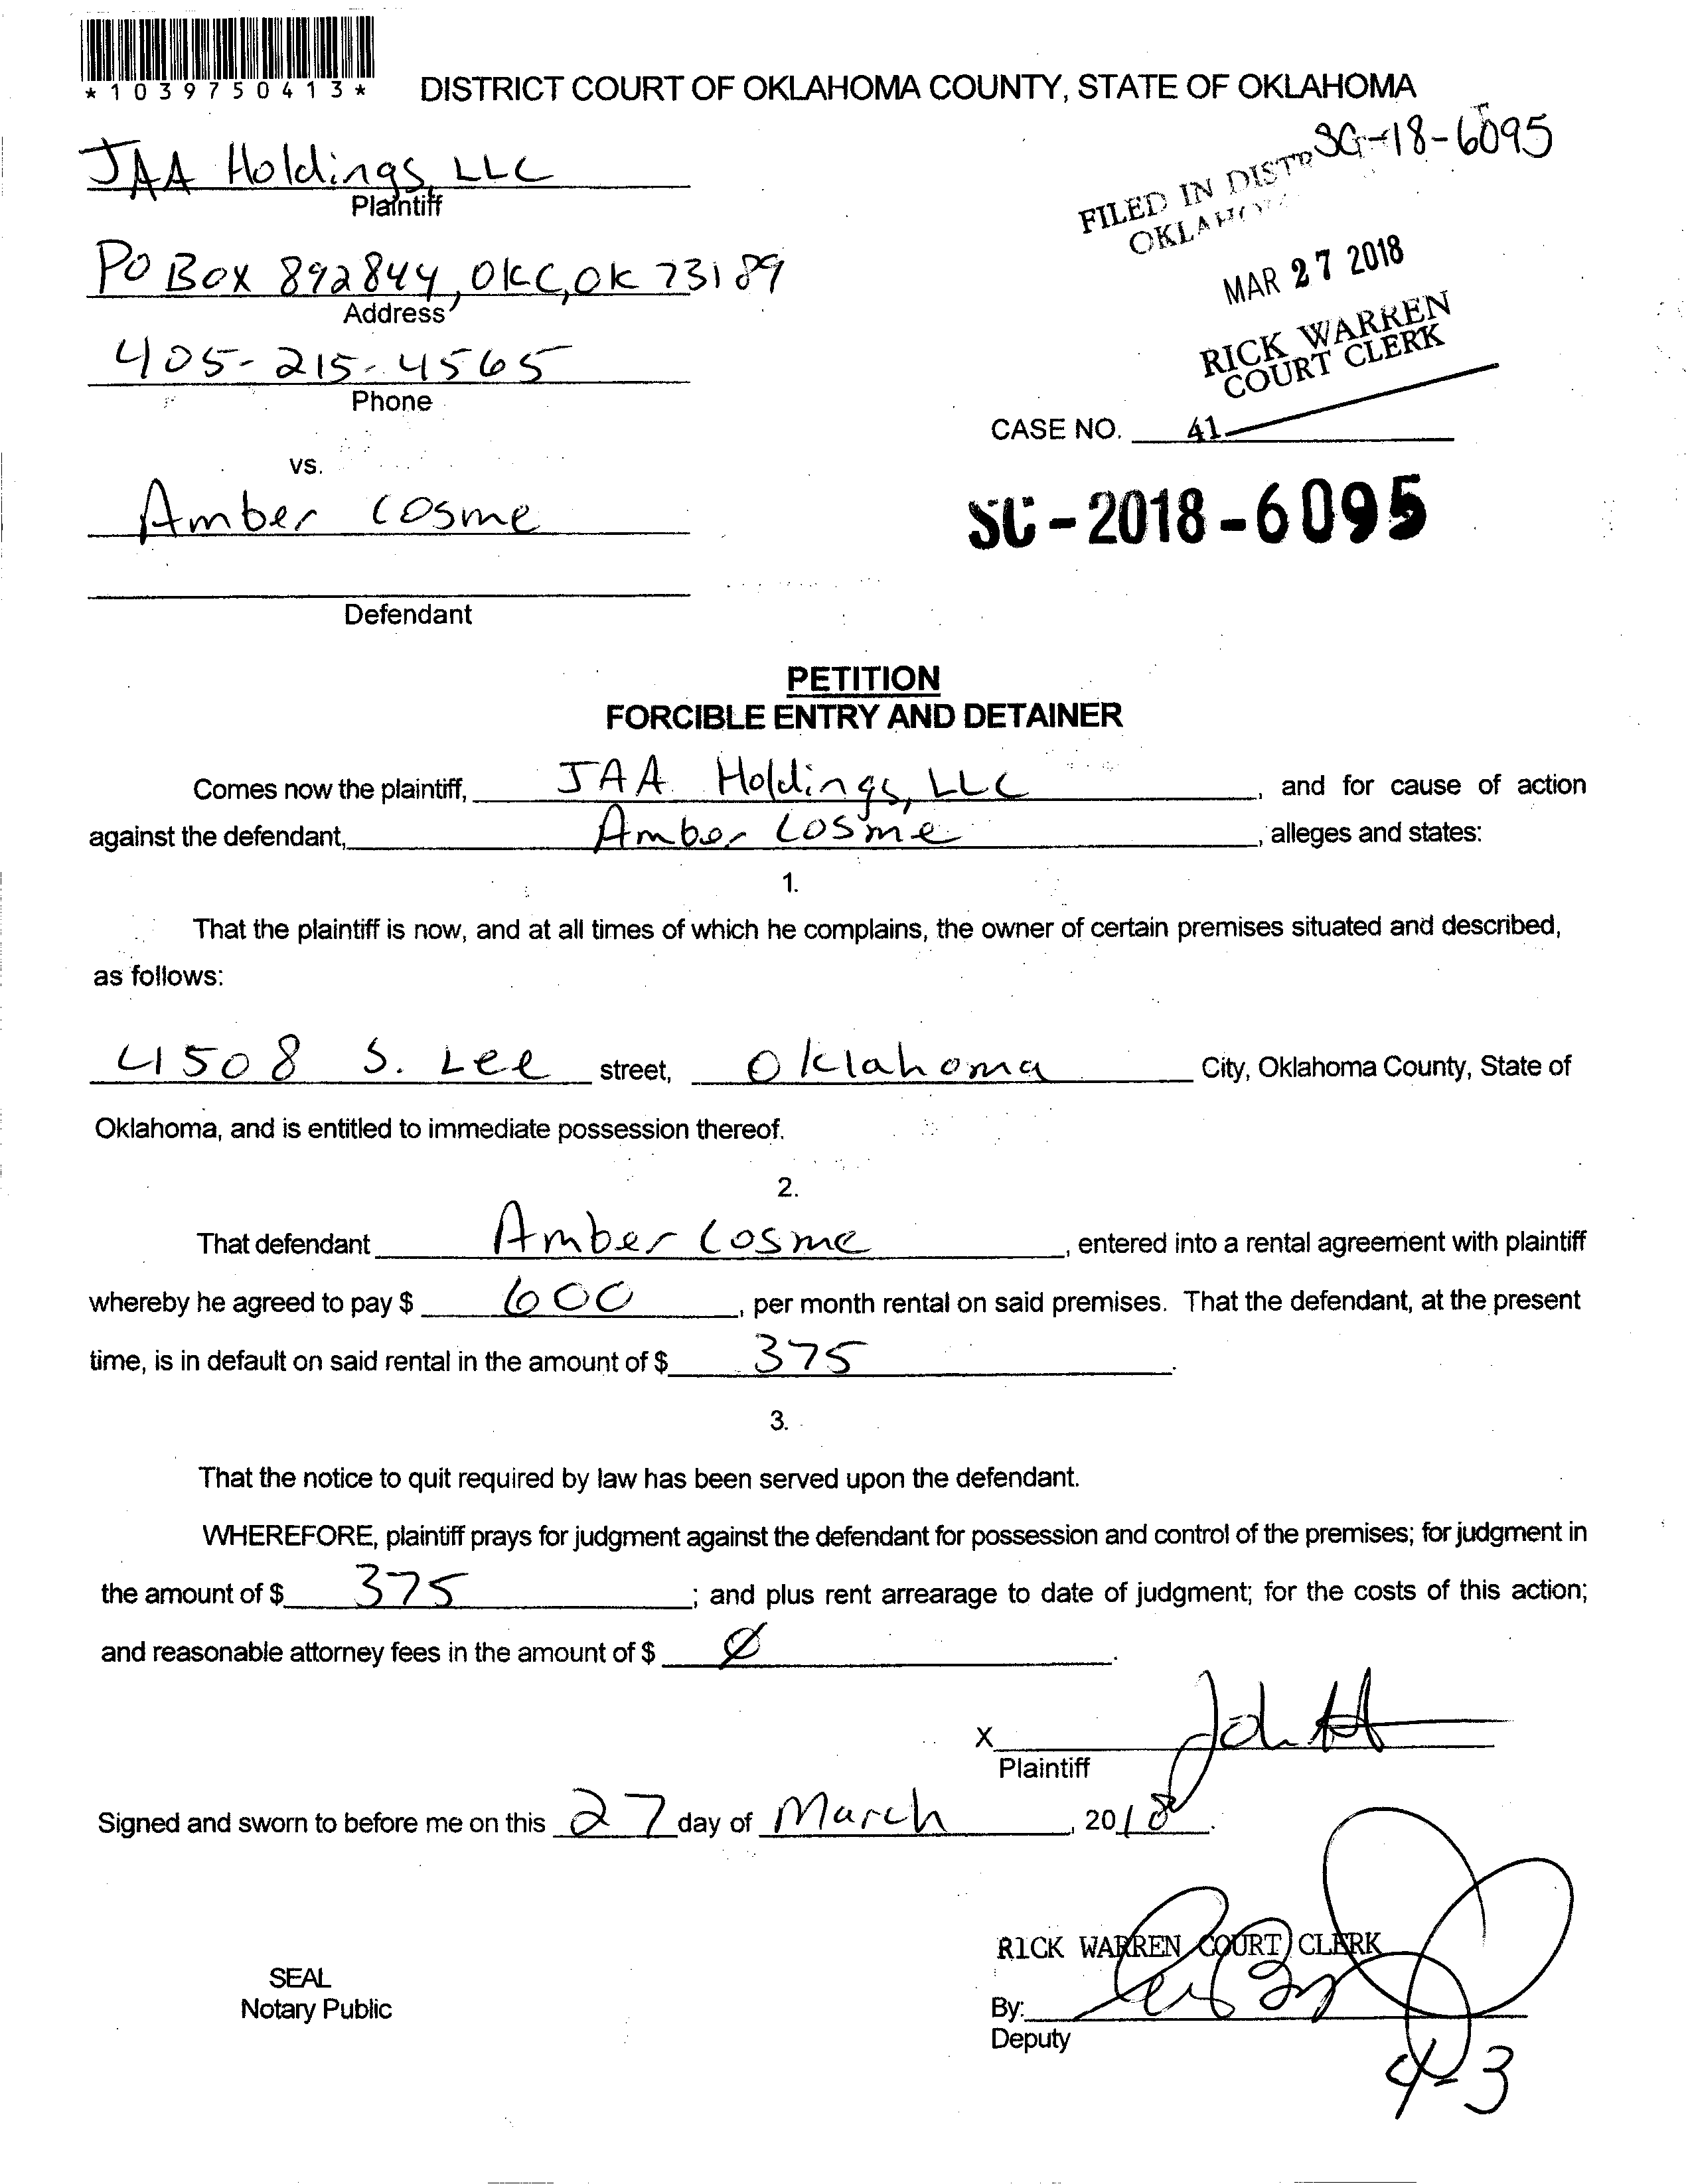 *1039750413*
DISTRICT COURT OF OKLAHOMA COUNTY, STATE OF OKLAHOMA
JAA Holdings, LLC
Plaintiff
SC-18-6095
FILED IN DIST
OKLAHO
MAR 27 2018
RICK WARREN
COURT CLERK
PO Box 892844, OKC, OK 73189
Address
405-215-4565
Phone
CASE NO. 41
vs.
Amber Cosme
SC-2018-6095
Defendant
PETITION
FORCIBLE ENTRY AND DETAINER
Comes now the plaintiff, JAA Holdings, LLC, and for cause of action
against the defendant, Amber Cosme, alleges and states:
1.
That the plaintiff is now, and at all times of which he complains, the owner of certain premises situated and described,
as follows:
4508 S. Lee street, Oklahoma City, Oklahoma County, State of
Oklahoma, and is entitled to immediate possession thereof.
2.
That defendant Amber Cosme, entered into a rental agreement with plaintiff
whereby he agreed to pay $ 600, per month rental on said premises. That the defendant, at the present
time, is in default on said rental in the amount of $ 375.
3.
That the notice to quit required by law has been served upon the defendant.
WHEREFORE, plaintiff prays for judgment against the defendant for possession and control of the premises; for judgment in
the amount of $ 375; and plus rent arrearage to date of judgment; for the costs of this action;
and reasonable attorney fees in the amount of $ Ø.
X
Plaintiff
Signed and sworn to before me on this 27 day of March, 2018.
RICK WARREN COURT CLERK
SEAL
Notary Public
By:
Deputy
4-3